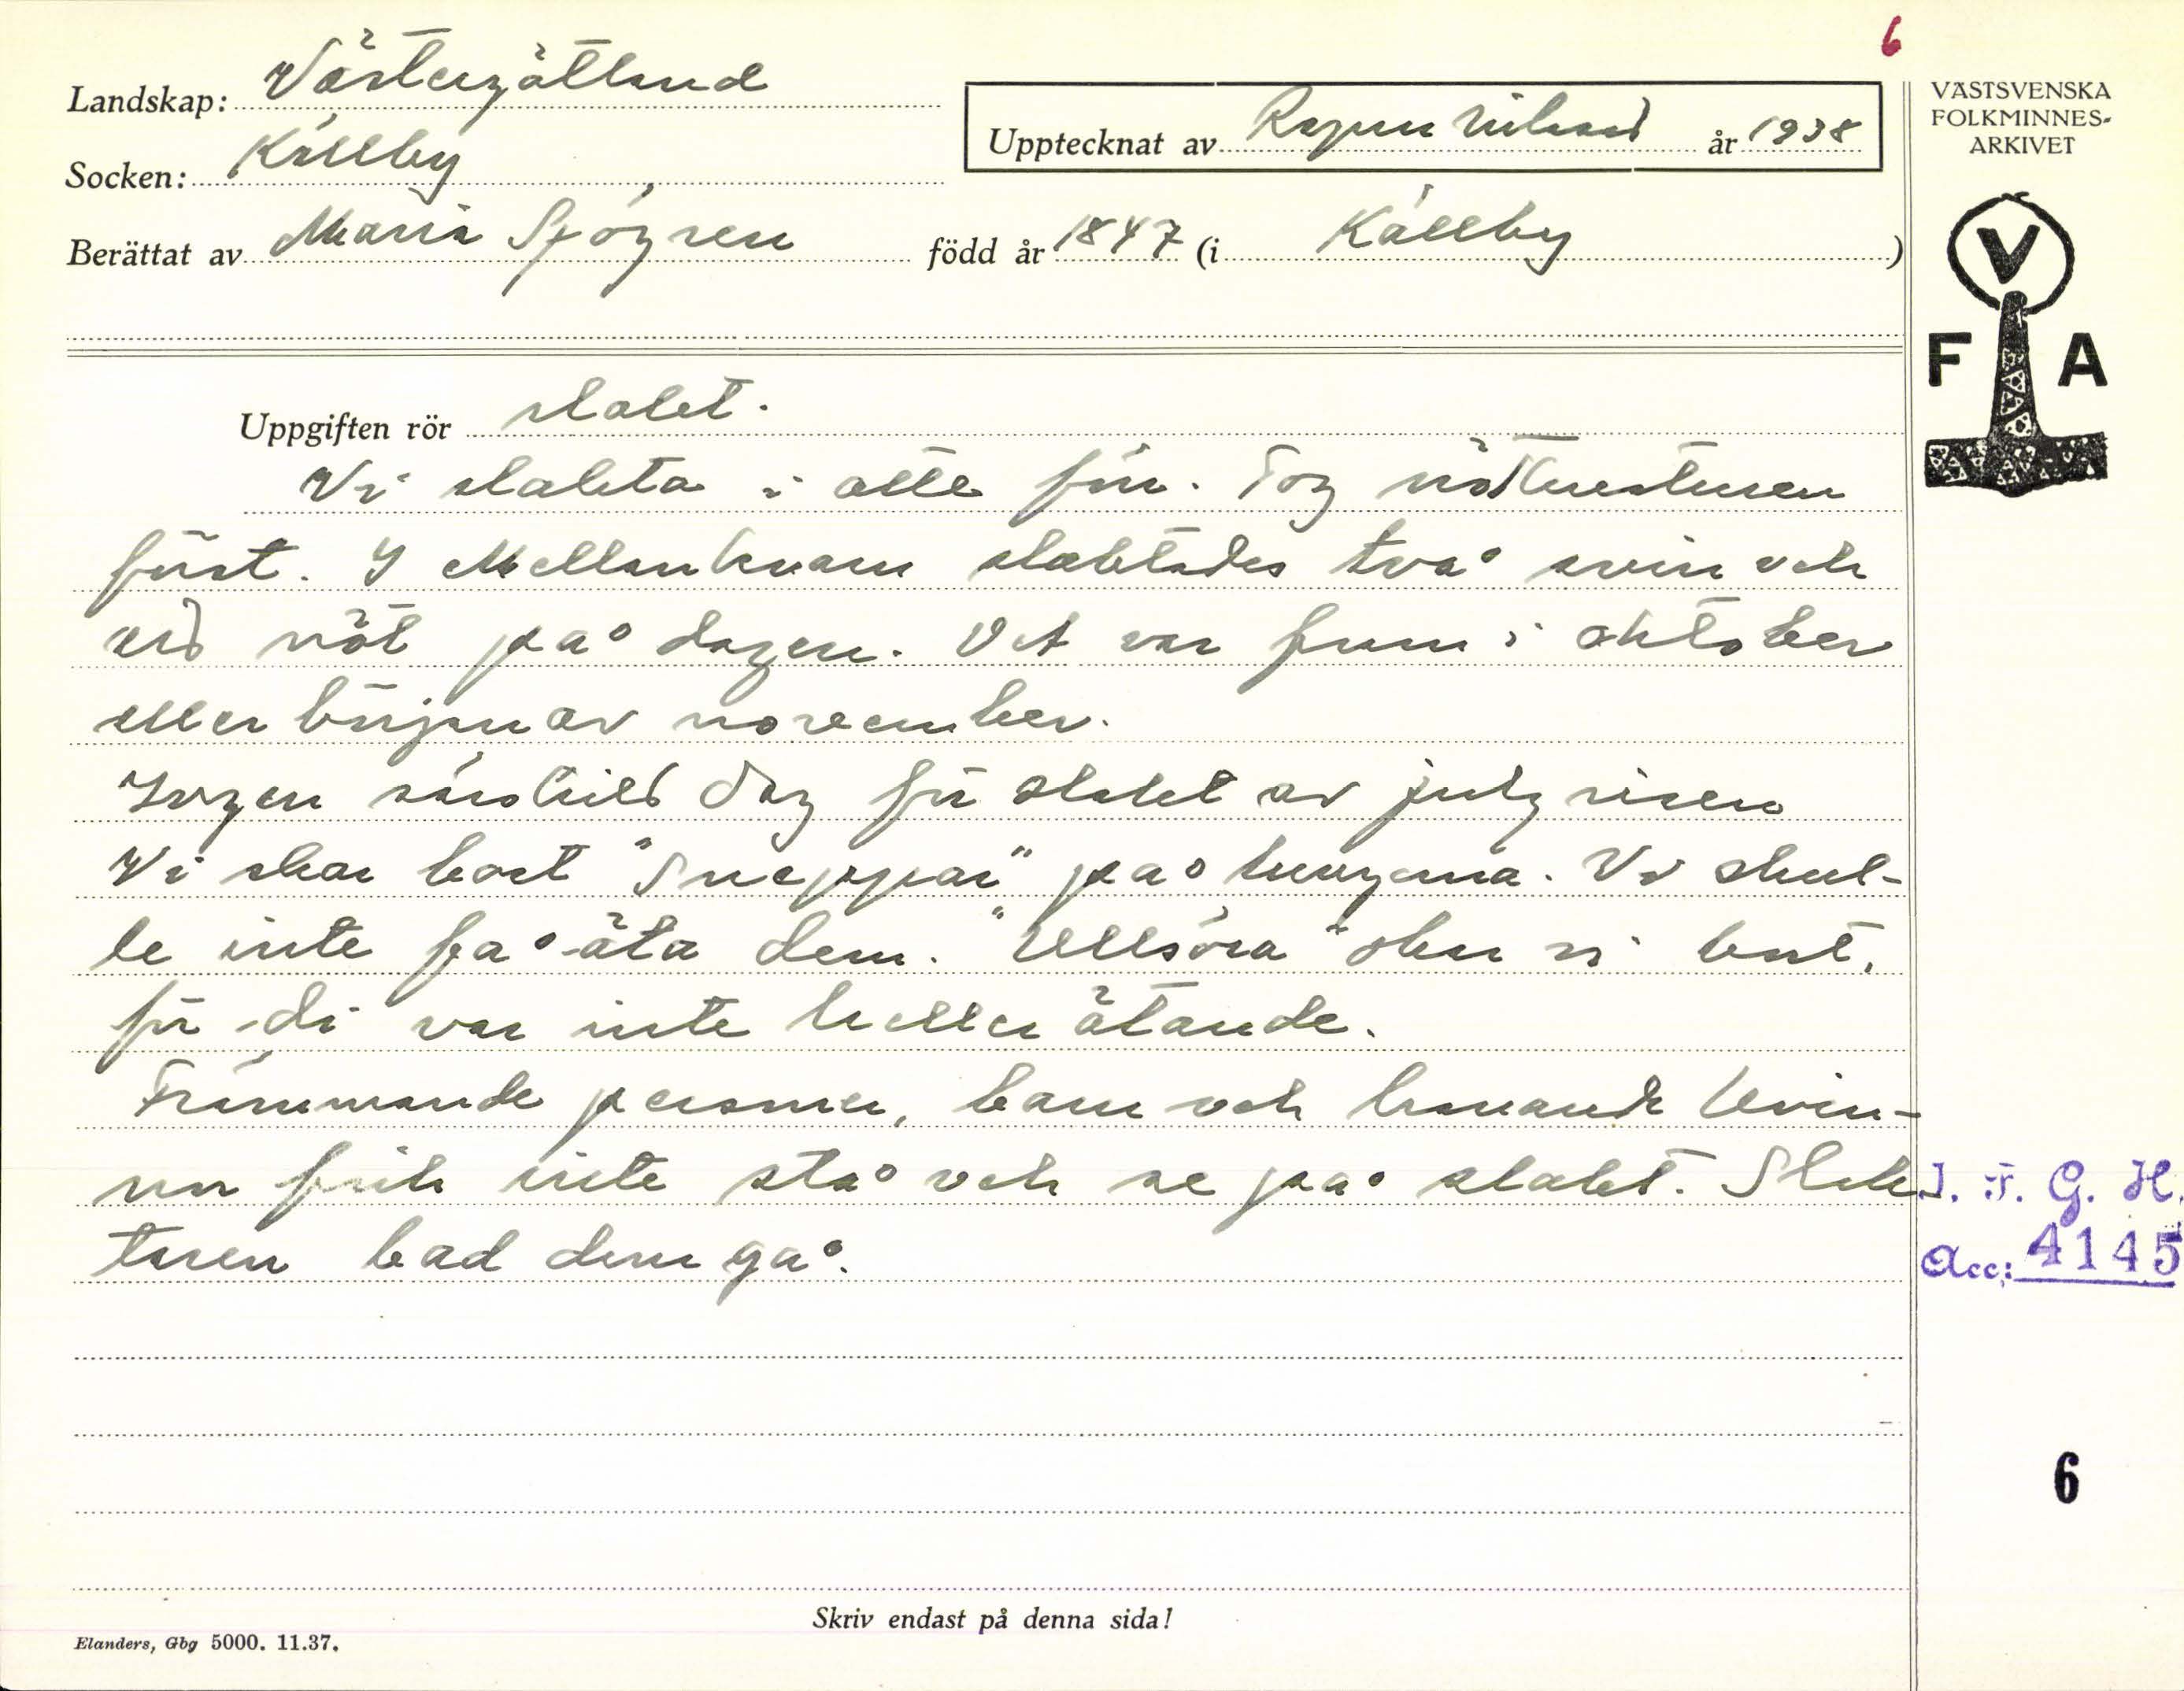 6
Landskap: Västergötland
Socken: Källby
Upptecknat av Ragnar Nilsson år 1938
Berättat av Maria Sjögren född år 1847 (i Källby)
VÄSTSVENSKA
FOLKMINNES-
ARKIVET
V
F A
Uppgiften rör slakt.
Vi slakta i alla fin. Tog nötkreaturen
först. I Mellankvarn slaktades två svin och
ett nöt på dagen. Det var fram i oktober
eller början av november.
Ingen särskild dag för slakt av julgrisen
Vi skar bort "Sneppar" på lungorna. Vi skul-
le inte få äta dem. "Ullsöra" skar vi bort,
för di var inte heller ätande.
Främmande personer, barn och havande kvin-
nor fick inte stå och se på slakt. Slak
taren bad dem gå.
I. F. G. H.
Acc: 4145
6
Skriv endast på denna sida!
Elanders, Gbg 5000. 11.37.